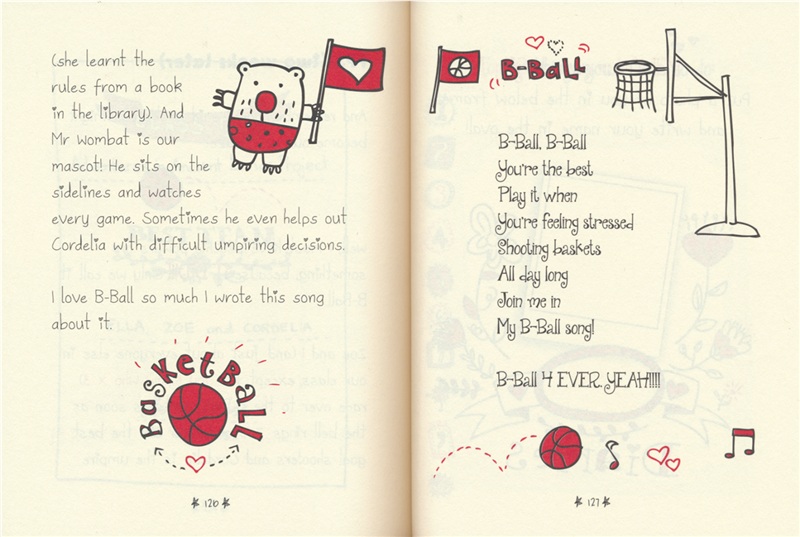 (she learnt the
rules from a book
in the library). And
Mr Wombat is our
mascot! He sits on the
sidelines and watches
every game. Sometimes he even helps out
Cordelia with difficult umpiring decisions.
I love B-Ball so much I wrote this song
about it.
BasKetBaLL
* 126 *
B-BaLL
B-Ball, B-Ball
You're the best
Play it when
You're feeling stressed
Shooting baskets
All day long
Join me in
My B-Ball song!
B-Ball 4 EVER, YEAH!!!!
* 127 *